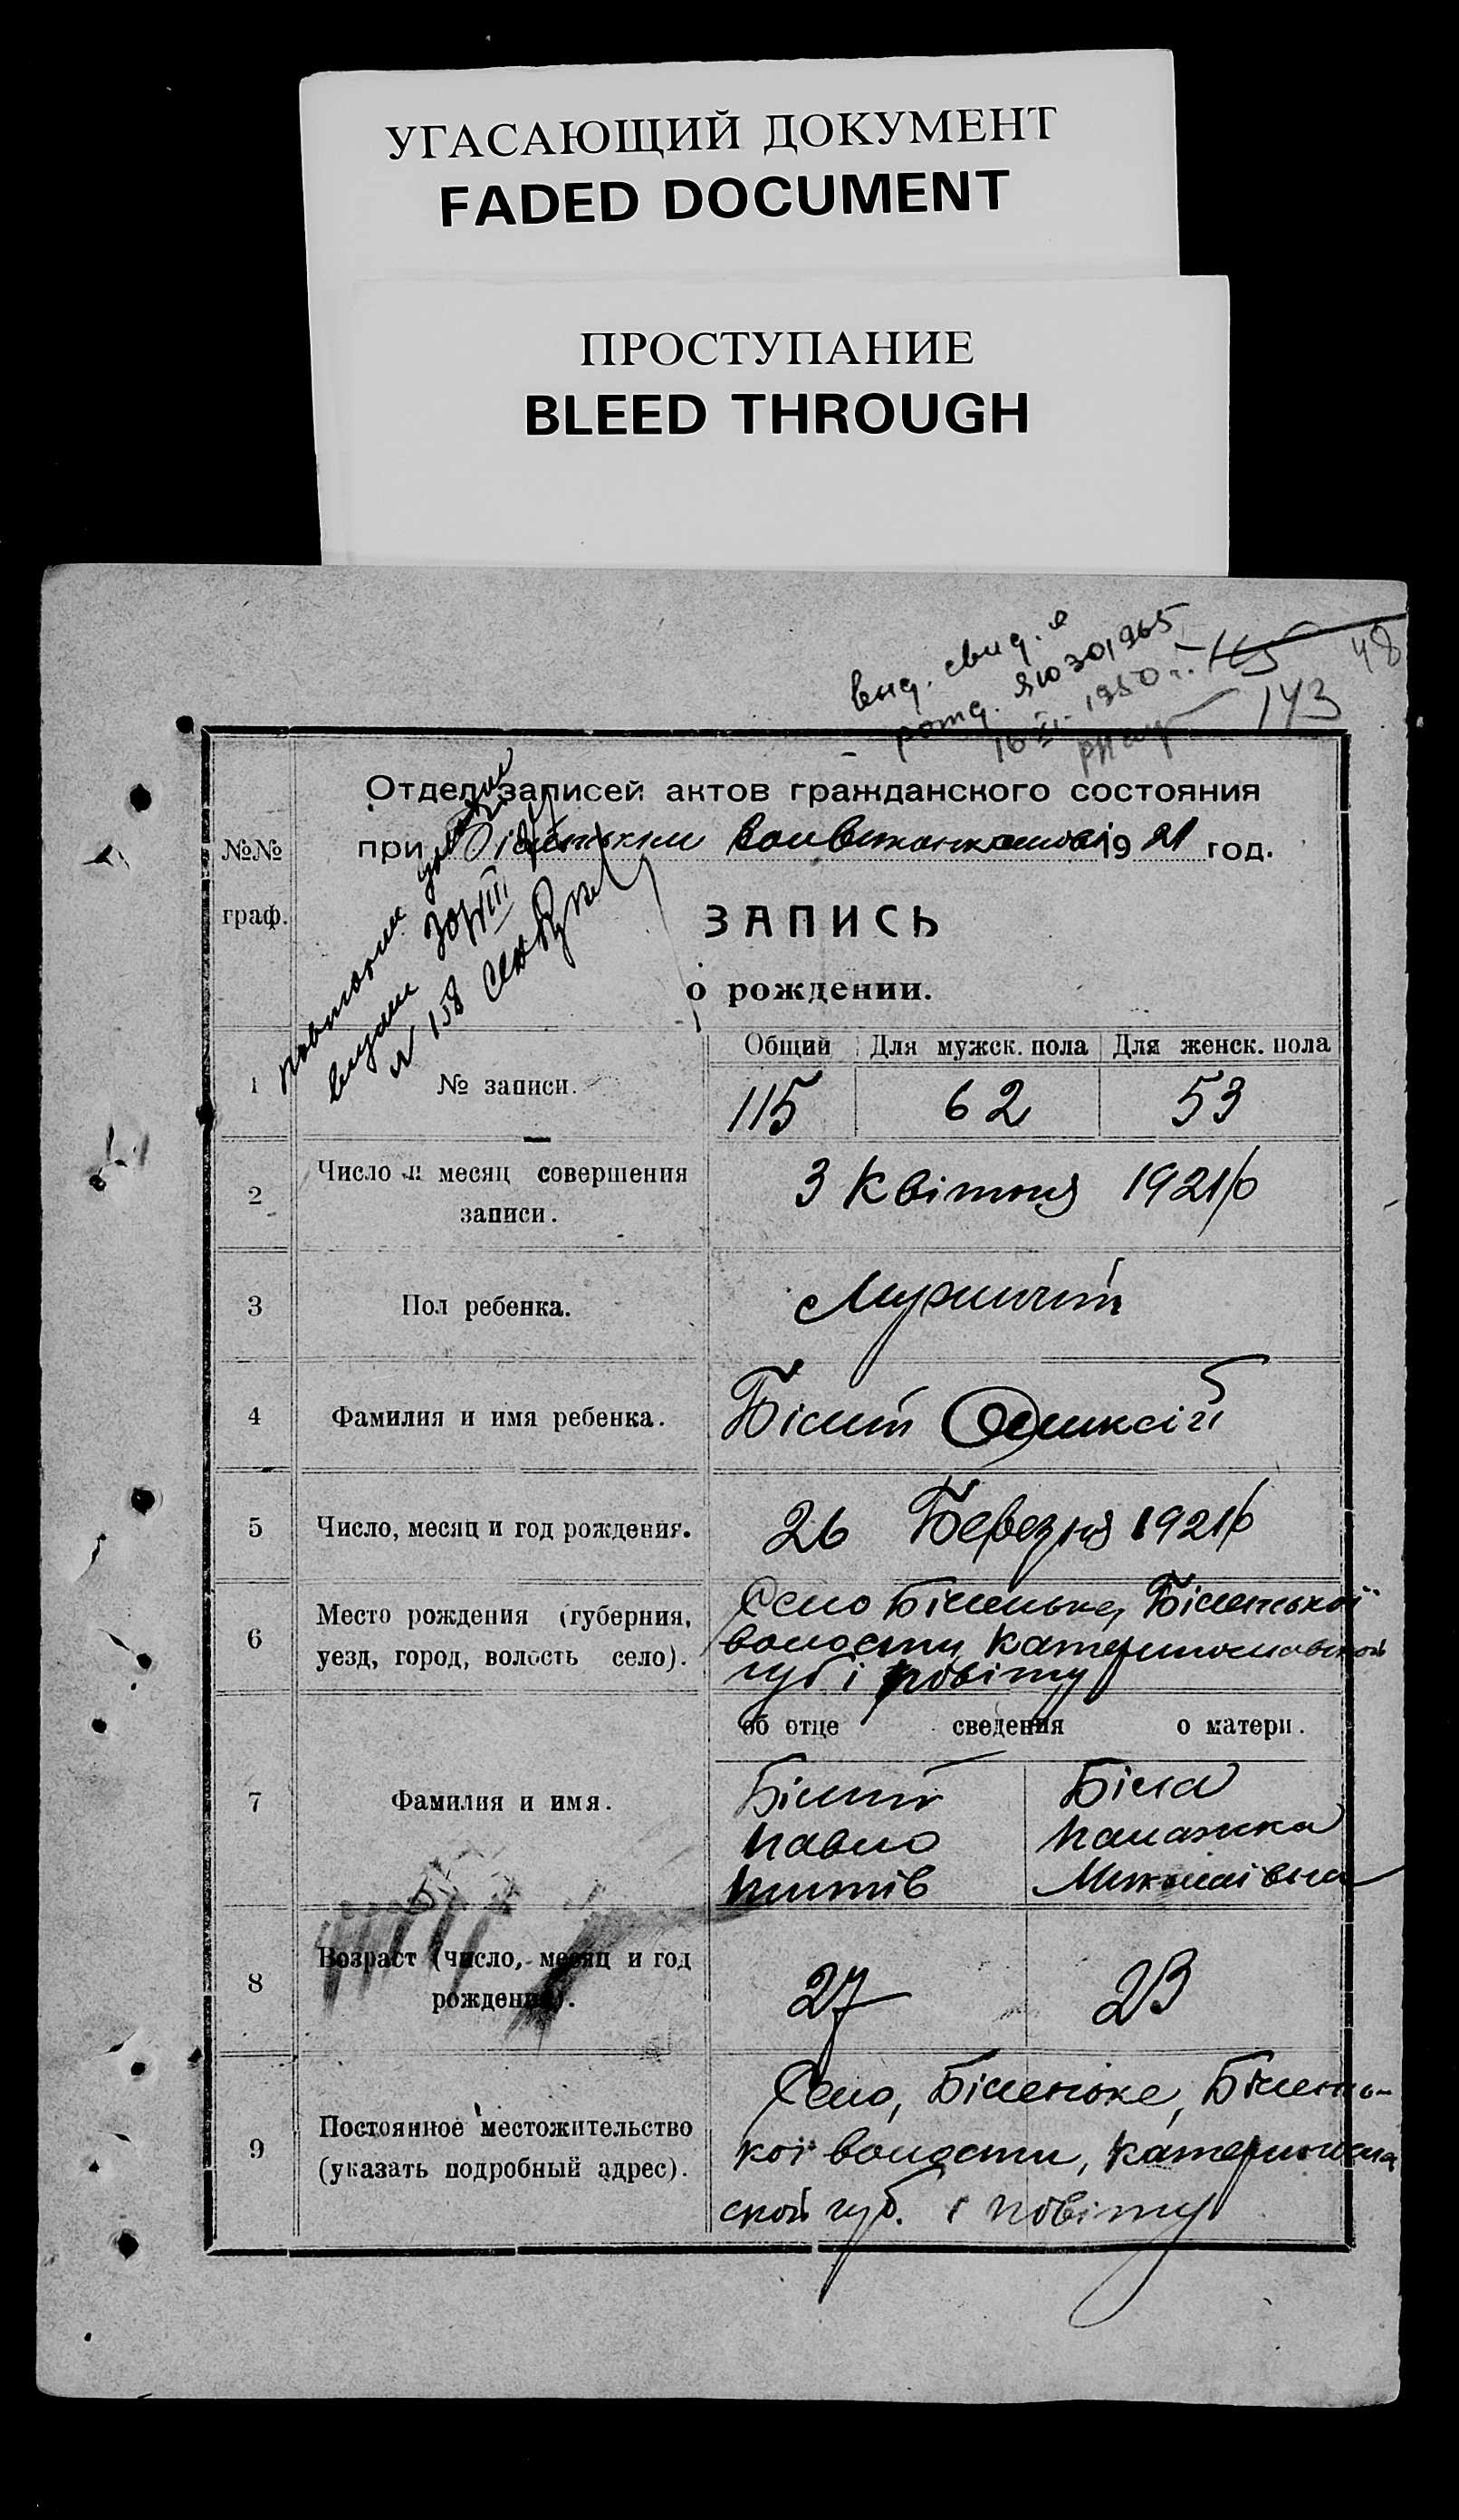 УГАСАЮЩИЙ ДОКУМЕНТ
FADED DOCUMENT
ПРОСТУПАНИЕ
BLEED THROUGH
48
выд. свид. о
рожд. ЯЮ 301965
165
16 XI. 1950 г.
143
№№ граф.
Отдел записей актов гражданского состояния
при Біленьким Волвиконкомові 1921 год.
повторне
видане
№ 158
ЗАПИСЬ
о рождении.
Общий Для мужск. пола Для женск. пола
1 № записи. 115 62 53
2 Число и месяц совершения записи. 3 Квітня 1921 р
3 Пол ребенка. Мужичий
4 Фамилия и имя ребенка. Білий Олексій
5 Число, месяц и год рождения. 26 Березня 1921 р
6 Место рождения (губерния, уезд, город, волость село).
Село Біленьке, Біленської
волости, Катеринославской
губ і повіту
об отце сведения о матери.
7 Фамилия и имя.
Білий Біла
Павло Палажка
Титів Миколаівна
8 Возраст (число, месяц и год рождения). 27 23
9 Постоянное местожительство (указать подробный адрес).
Село, Біленьке, Білень-
коі волости, Катериносла
ской губ. і повіту